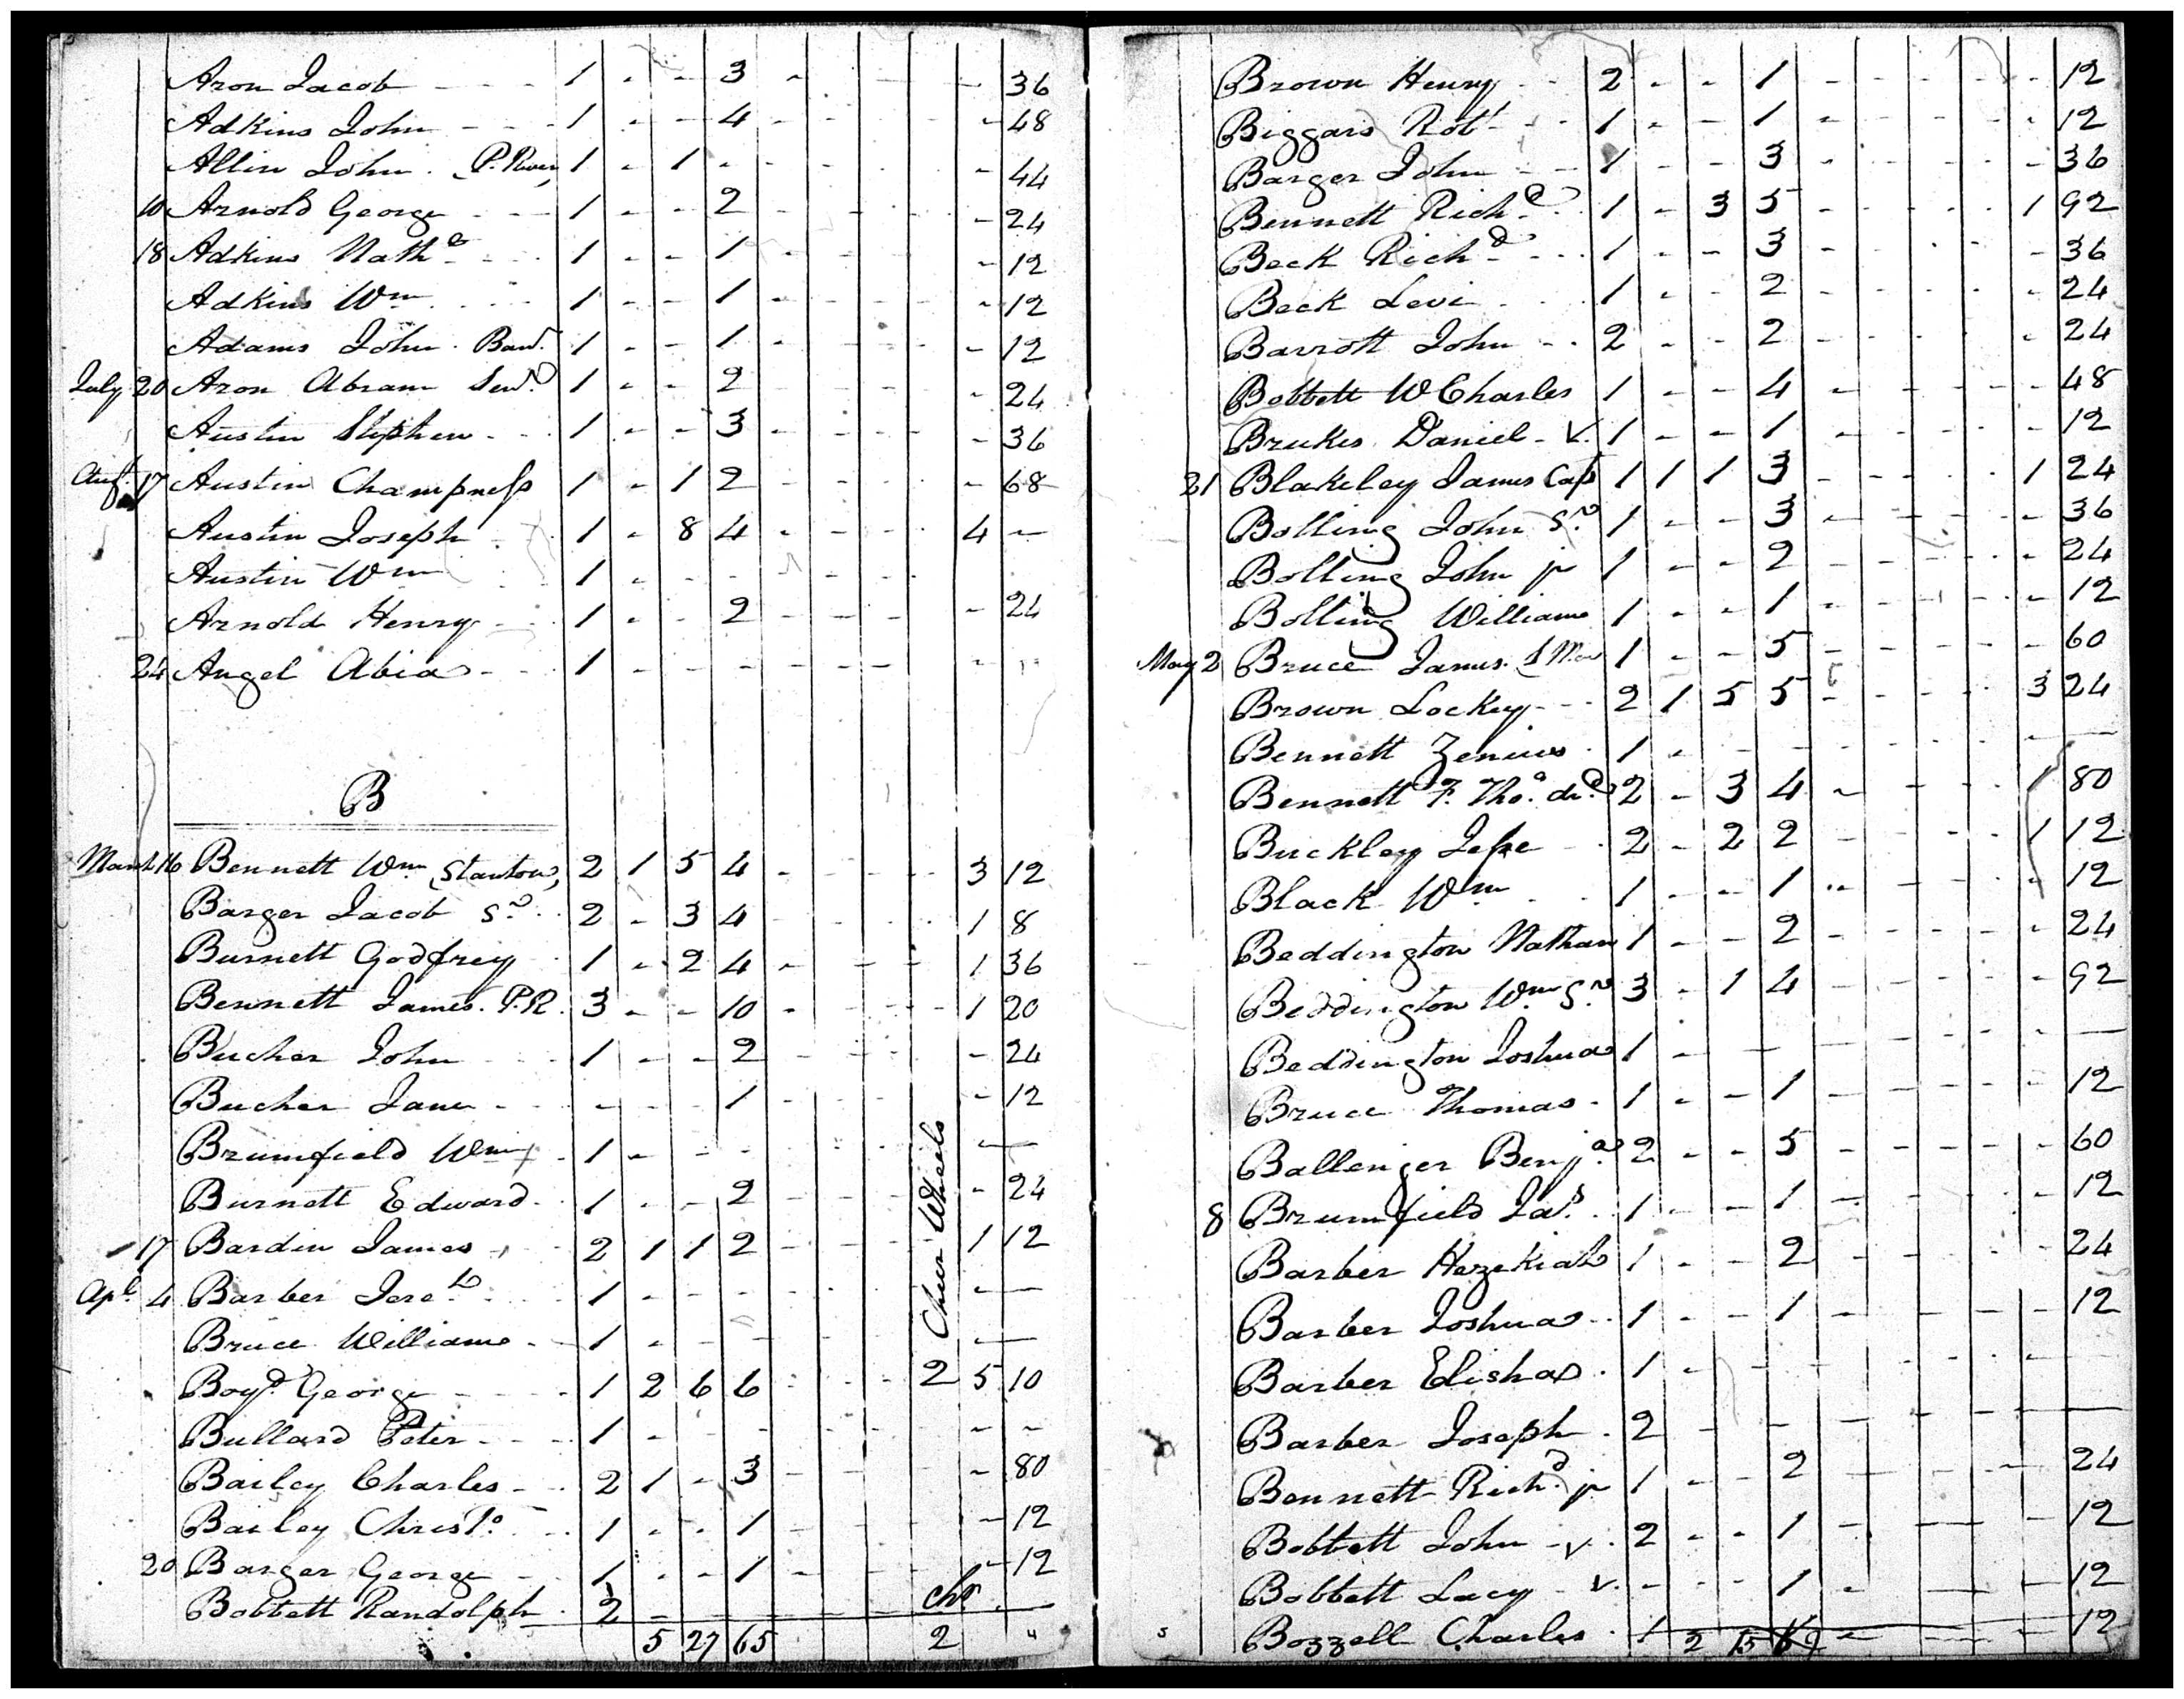 Aron Jacob - - - 1 - - 3 - - 36
Adkins John - - - 1 - - 4 - - - - 48
Allin John. P. River 1 - 1 - - - - 44
10 Arnold George - - - 1 - - 2 - - - - 24
18 Adkins Nath.l - - 1 - - 1 - - - - 12
Adkins Wm - - - 1 - - 1 - - - - 12
Adams John. Ban.r 1 - - 1 - - - - 12
July 20 Aron Abram Sen.r 1 - - 2 - - - - 24
Austin Stephen - - 1 - - 3 - - - - 36
Aug.t 17 Austin Champness 1 - 1 2 - - - - 68
Austin Joseph - 1 - 8 4 - - - 4 -
Austin Wm - - 1 - - - - - -
Arnold Henry - - 1 - - 2 - - - - 24
24 Angel Abia - - 1 - - - - - - -
B
March 16 Bennett Wm Stanton, 2 1 5 4 - - - - 3 12
Barger Jacob Sr. 2 - 3 4 - - - 1 8
Burnett Godfrey 1 - 2 4 - - - 1 36
Bennett James. P.R. 3 - - 10 - - - 1 20
Bucher John - - 1 - - 2 - - - - 24
Bucher Jane - - - - - 1 - - - 12
Brumfield Wm - 1 - - - - - -
Burnett Edward - 1 - - 2 - - - 24
17 Bardin James - 2 1 1 2 - - - 1 12
Apl. 4 Barber Jere.h - - 1 - - - - - -
Bruce William - 1 - - - - -
Boyd George - - - 1 2 6 6 - - - 2 5 10
Bullard Peter - - - 1 - - - - - -
Bailey Charles - - 2 1 - 3 - - - - 80
Bailey Christ.o - - 1 - - 1 - - - - 12
20 Barger George - 1 - - 1 - - - - 12
Bobbett Randolph. 2 - - - - - chr
5 27 65 2 4
Chier Wheels
Brown Henry - - 2 - - 1 - - - - - 12
Biggars Rob.t - - 1 - - 1 - - - - 12
Barger John - - 1 - - 3 - - - 36
Bennett Rich.d 1 - 3 5 - - - - 1 92
Beck Rich.d - - - 1 - - 3 - - - - 36
Beck Levi - - - 1 - - 2 - - - - 24
Barrott John - - 2 - - 2 - - - - 24
Bobbett W Charles 1 - - 4 - - - - - 48
Brukes Daniel - V. 1 - - 1 - - - - - 12
21 Blakeley James Cap 1 1 1 3 - - - - 1 24
Bolling John Sr. 1 - - 3 - - - - - 36
Bolling John jr 1 - - 2 - - - - - 24
Bolling William 1 - - 1 - - - - - 12
May 2 Bruce James. 1 - - 5 - - - - - 60
Brown Lockey - - - 2 1 5 5 - - - - 3 24
Bennett Zenius - 1 - - - - - -
Bennett F. Tho.s 2 - 3 4 - - - - 1 80
Buckley Jesse - - 2 - 2 2 - - - - 1 12
Black Wm 1 - - 1 - - - - - 12
Beddington Nathan 1 - - 2 - - - - - 24
Beddington Wm Sr. 3 - 1 4 - - - - - 92
Beddington Joshua 1 - - - - - - -
Bruce Thomas - 1 - - 1 - - - - - 12
Ballenger Benj.a 2 - - 5 - - - - - 60
8 Brumfield Ja.s - 1 - - 1 - - - - - 12
Barber Hezekiah 1 - - 2 - - - - - 24
Barber Joshua - - 1 - - 1 - - - - - 12
Barber Elisha - 1 - - - - - -
Barber Joseph - 2 - - - - - -
Bennett Rich.d jr 1 - - 2 - - - - 24
Bobbett John - v. 2 - - 1 - - - - 12
Bobbett Lacy - v. - - - 1 - - - - 12
5 Bozzell Charles - 1 - - - - - 12
2 15 69